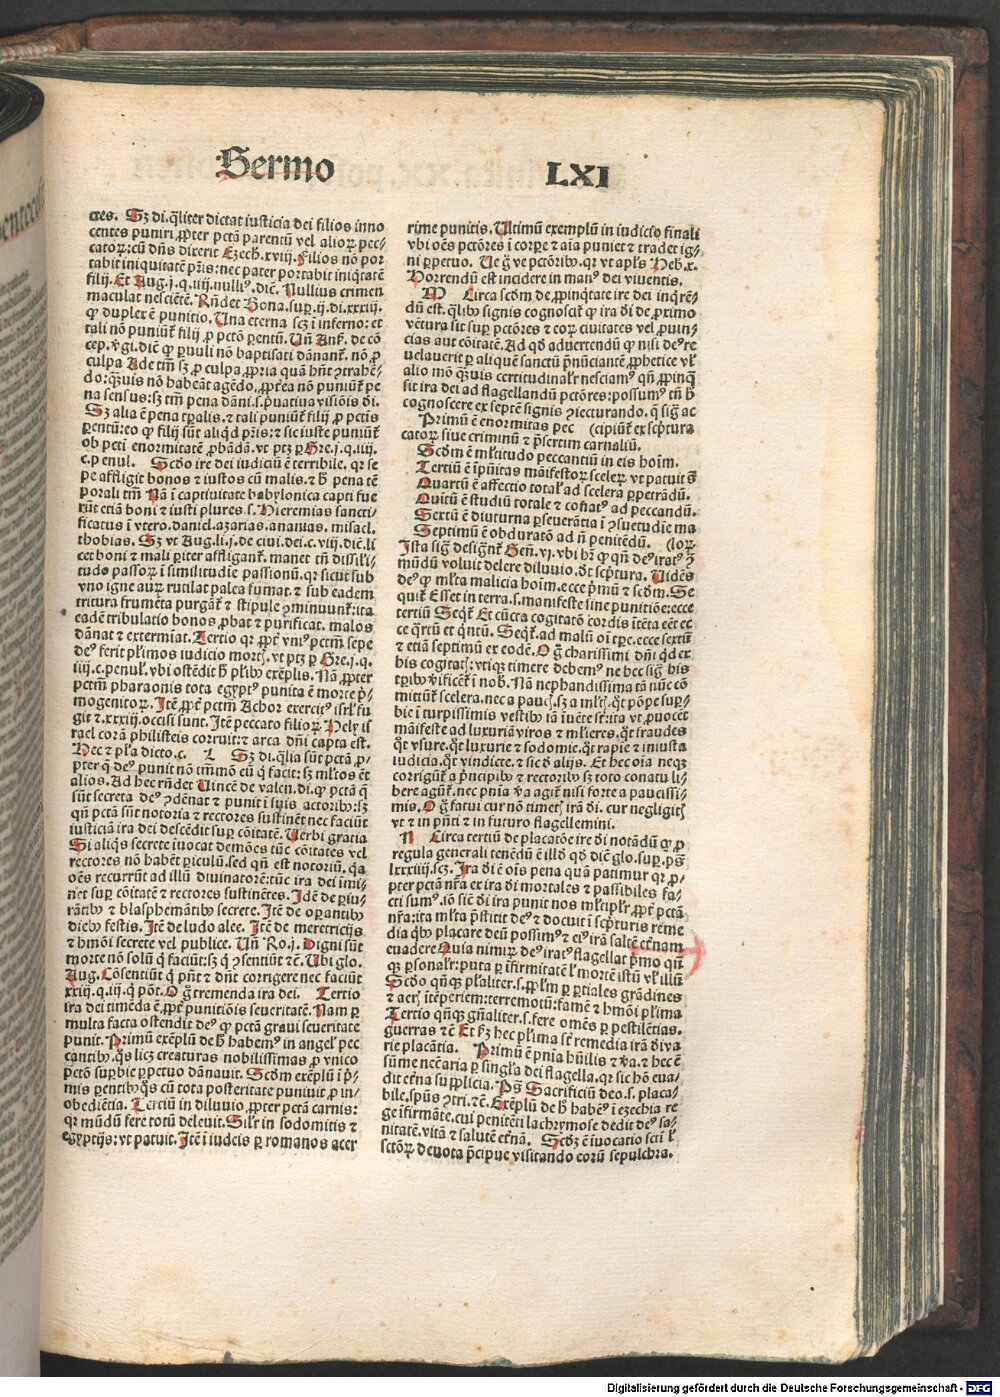 Sermo LXI
ctes. Sꝫ di. q̃liter dictat iusticia dei filios inno
centes puniri ꝓpter pctã parentũ vel alioꝝ pec
catoꝝ: cũ dñs dixerit Ezech. xviij. Filios nõ por
tabit iniquitatẽ pr̃is: nec pater portabit iniq̃tatẽ
filij. Et Aug. j. q. iiij. nullꝰ. diẽ. Nullius crimen
maculat nesciẽtẽ. Rñdet Bona. suꝑ. ij. di. xxxiij.
ꝙ duplex ẽ punitio. Una eterna scꝫ ĩ inferno: et
tali nõ puniunt̃ filij ꝓ pctõ ꝑentũ. Uñ Anẜ. de cõ
cep. ṽgi. diẽ ꝙ ꝑuuli nõ baptisati dãnant̃. nõ ꝓ
culpa Ade tm̃ sꝫ ꝓ culpa ꝓpria quã hñt ꝯtrahẽ/
do: q̃uis nõ habeãt agẽdo, ꝓpt̃ea nõ puniunt̃ pe
na sensus: sꝫ tm̃ pena dãni. s. pͥuatiua visiõis di.
Sꝫ alia ẽ pena tꝑalis. ⁊ tali puniunt̃ filij ꝓ pctis
ꝑentũ: eo ꝙ filij sũt aliq̃d pr̃is: ⁊ sic iuste puniunt̃
ob pcti enormitatẽ ꝓbãdã. vt ptꝫ ꝑ Gre. j. q. iiij.
c. penul. Scd̃o ire dei iudiciũ ẽ terribile. qꝛ se
pe affligit bonos ⁊ iustos cũ malis. ⁊ h̃ pena tẽ
porali tm̃. Nã ĩ captiuitate babylonica capti fue
rũt etiã boni ⁊ iusti plures. s. Hieremias sancti
ficatus ĩ vtero. daniel. azarias. ananias. misael.
thobias. Sꝫ vt Aug. li. j. de ciui. dei. c. viij. diẽ. li
cet boni ⁊ mali ꝑiter affligant̃. manet tñ dissili/
tudo passoꝝ ĩ similitudĩe passionũ. qꝛ sicut sub
vno igne auꝝ rutilat palea fumat. ⁊ sub eadem
tritura frumẽta purgãt̃ ⁊ stipule ꝯminuunt̃: ita
eadẽ tribulatio bonos ꝓbat ⁊ purificat. malos
dãnat ⁊ extermiat. Tertio qꝛ ꝓpt̃ vniꝰ pctm̃ sepe
deꝰ ferit pl̃imos iudicio mortꝭ. vt ptꝫ ꝑ Gre. j. q.
iiij. c. penul̃. vbi ostẽdit h̃ pl̃ibꝰ exẽplis. Nã ꝓpter
pctm̃ pharaonis tota egyptꝰ punita ẽ morte pͥ/
mogenitoꝝ. Itẽ ꝓpt̃ pctm̃ Achor exercitꝰ isrl̃ fu
git ⁊. xxxiij. occisi sunt. Itẽ peccato filioꝝ Hely is
rael corã philisteis corruit: ⁊ arca dñi capta est.
Hec ⁊ pl̃a dicto. c. L Sꝫ di. q̃lia sũt pctã ꝓ/
pter q̃ deꝰ punit nõ tm̃mõ eũ q̃ facit: sꝫ ml̃tos et
alios. Ad hec rñdet Uincẽ de valen. di. ꝙ pctã q̃
sũt secreta deꝰ ꝯdẽnat ⁊ punit ĩ suis actoribꝰ: sꝫ
qñ pctã sũt notoria ⁊ rectores sustinẽt nec faciũt
iusticiã ira dei descẽdit suꝑ cõitatẽ. Uerbi gratia
Si aliq̃s secrete iuocat demões tũc cõitates vel
rectores nõ habẽt ꝑiculũ. sed qñ est notoriũ. qꝛ
oẽs recurrũt ad illũ diuinatorẽ: tũc ira dei imi/
net suꝑ cõitatẽ ⁊ rectores sustinẽtes. Idẽ de ꝑiu/
rãtibꝰ ⁊ blasphemãtibꝰ secrete. Itẽ de oꝑantibꝰ
diebꝰ festis. Itẽ de ludo alee. Itẽ de meretricijs
⁊ hmõi secrete vel publice. Uñ Ro. j. Digni sũt
morte nõ solũ q̃ faciũt: sꝫ q̃ ꝯsentiũt ⁊cẽ. Ubi glo.
Aug. Cõsentiũt q̃ pñt ⁊ dñt corrigere nec faciũt
xxiij. q. iij. q̃ põt. O q̃ tremenda ira dei. Tertio
ira dei timẽda ẽ ꝓpt̃ punitiõis seueritatẽ. Nam ꝑ
multa facta ostendit deꝰ ꝙ pctã graui seueritate
punit. Primũ exẽplũ de h̃ habemꝰ in angel̃ pec
cantibꝰ. q̃s licꝫ creaturas nobilissimas ꝓ vnico
pctõ suꝑbie ꝑpetuo dãnauit. Scdm̃ exẽplũ ĩ pͥ/
mis ꝑentibꝰ q̃s cũ tota posteritate puniuit ꝓ in/
obediẽtia. Tertiũ in diluuio, ꝓpter pctã carnis:
qꝛ mũdũ fere totũ deleuit. Sil̃r in sodomitis ⁊
egyptijs: vt patuit. Itẽ ĩ iudeis ꝑ romanos acer
rime punitis. Ultimũ exemplũ in iudicio finali
vbi oẽs pctõres ĩ corꝑe ⁊ aĩa puniet ⁊ tradet ig/
ni ꝑpetuo. Ue g̃ ve pctõribꝰ. qꝛ vt apl̃s Heb. x.
Horrendũ est incidere in manꝰ dei viuentis.
M Circa scdm̃ de ꝓpinq̃tate ire dei inq̃rẽ/
dũ est. q̃libꝰ signis cognoscat̃ ꝙ ira dĩ de ꝓximo
vẽtura sit suꝑ pctõres ⁊ eoꝝ ciuitates vel ꝓuin/
cias aut cõitatẽ. Ad qd̃ aduertendũ ꝙ nisi deꝰ re
uelauerit ꝑ aliquẽ sanctũ pñunciantẽ ꝓphetice vl̃
alio mõ q̃uis certitudinal̃r nesciamꝰ qñ ꝓpinq̃
sit ira dei ad flagellandũ pctõres: possumꝰ tñ h̃
cognoscere ex septẽ signis ꝯiecturando. q̃ sig̃ ac
Primũ ẽ enormitas pec (cipiunt̃ ex scͥptura
catoꝝ siue criminũ ⁊ pͥsertim carnaliũ.
Scdm̃ ẽ ml̃titudo peccantiũ in eis hoĩm.
Tertiũ ẽ ĩpũitas mãifestoꝝ sceleꝝ vt patuit s̃.
Quartũ ẽ affectio total̃ ad scelera ꝑpetrãdũ.
Quitũ ẽ studiũ totale ⁊ conatꝰ ad peccandũ.
Sextũ ẽ diuturna ꝑseuerãtia ĩ ꝯsuetudĩe ma
Septimũ ẽ obduratõ ad ñ penitẽdũ. (loꝝ
Ista sig̃ designat̃ Geñ. vj. vbi hr̃ ꝙ qñ deꝰ iratꝰ ꝫ
mũdũ voluit delere diluuio. dt̃ scͥptura. Uidẽs
deꝰ ꝙ ml̃ta malicia hoĩm. ecce pͥmũ ⁊ scdm̃. Se
quit̃ Esset in terra. s. manifeste sine punitiõe: ecce
tertiũ Seqt̃ Et cũcta cogitatõ cordis ĩtẽta eẽt ec
ce q̃rtũ et q̃ntũ. Seqt̃. ad malũ oĩ tꝑe. ecce sextũ
⁊ etiã septimũ ex eodẽ. O g̃ charissimi dñi qd̃ ex
his cogitatꝭ: vtiqꝫ timere debemꝰ ne hec sig̃ his
tꝑibꝰ v̾ificẽt̃ ĩ nob̃. Nã nephandissima tã nũc cõ
mittunt̃ scelera. nec a paucꝭ. sꝫ a ml̃tꝭ. qt̃ põpe suꝑ/
bie ĩ turpissimis vestibꝰ iã iuẽte st̃: ita vt ꝓuocẽt
mãifeste ad luxuriã viros ⁊ ml̃ieres. qt̃ fraudes
qt̃ vsure. qt̃ luxurie ⁊ sodomie. qt̃ rapie ⁊ iniusta
iudicia. qt̃ vindicte. ⁊ sic d̃ alijs. Et hec oĩa neqꝫ
corrigunt̃ a pͥncipibꝰ ⁊ rectoribꝰ sꝫ toto conatu li/
bere agunt̃. nec pñia v̾a agit̃ nisi forte a paucissi/
mis. O g̃ fatui cur nõ timetꝭ irã di. cur negligitꝭ
vt ⁊ in pñti ⁊ in futuro flagellemini.
N Circa tertiũ de placatõe ire dĩ notãdũ ꝙ ꝓ
regula generali tenẽdũ ẽ illd̃ qd̃ diẽ glo. suꝑ. ps̃
lxxxiiij. scꝫ. Ira dĩ ẽ oĩs pena quã patimur qꝛ ꝓ/
pter pctã nr̃a ex ira dĩ mortales ⁊ passibiles fa/
cti sumꝰ. iõ sic dĩ ira punit nos ml̃tipl̃r ꝓpt̃ pctã
nr̃a: ita ml̃ta pͥstitit deꝰ ⁊ docuit ĩ scͥpturis reme
dia q̃bꝰ placare deũ possimꝰ ⁊ eiꝰ irã saltẽ et̃nam
euadere Quia nimiꝝ deꝰ iratꝰ flagellat pͥmo qñ
qꝫ ꝑsonal̃r: puta ꝑ ĩfirmitatẽ l̃ mortẽ istiꝰ vl̃ illiꝰ
Scd̃o qñqꝫ pl̃aliter. s. ꝑ l̃m ꝑ ꝑtiales grãdines
⁊ aerꝭ ĩtẽperiem: terremotũ: famẽ ⁊ hmõi pl̃ima
Tertio qñqꝫ gñaliter. s. fere omẽs ꝑ pestilẽtias.
guerras ⁊cẽ Et ẜꝫ hec pl̃ima st̃ remedia irã diuia
rie placãtia. Primũ ẽ pñia hũilis ⁊ v̾a. ⁊ hec ẽ
sũme necc̃aria ꝑ singl̃a dei flagella. qꝛ sic hõ eua/
dit et̃na supplicia. Ps̃ Sacrificiũ deo. s. placa/
bile. spũs ꝯtri. ⁊cẽ. Exẽplũ de h̃ habẽꝰ ĩ ezechia re
ge ĩfirmãte. cui penitẽti lachrymose dedit deꝰ sa/
nitatẽ. vitã ⁊ salutẽ et̃nã. Scdꝫ ẽ iuocatio scti l̃
sctõꝝ deuota pͥcipue visitando eorũ sepulchra.
Digitalisierung gefördert durch die Deutsche Forschungsgemeinschaft - DFG